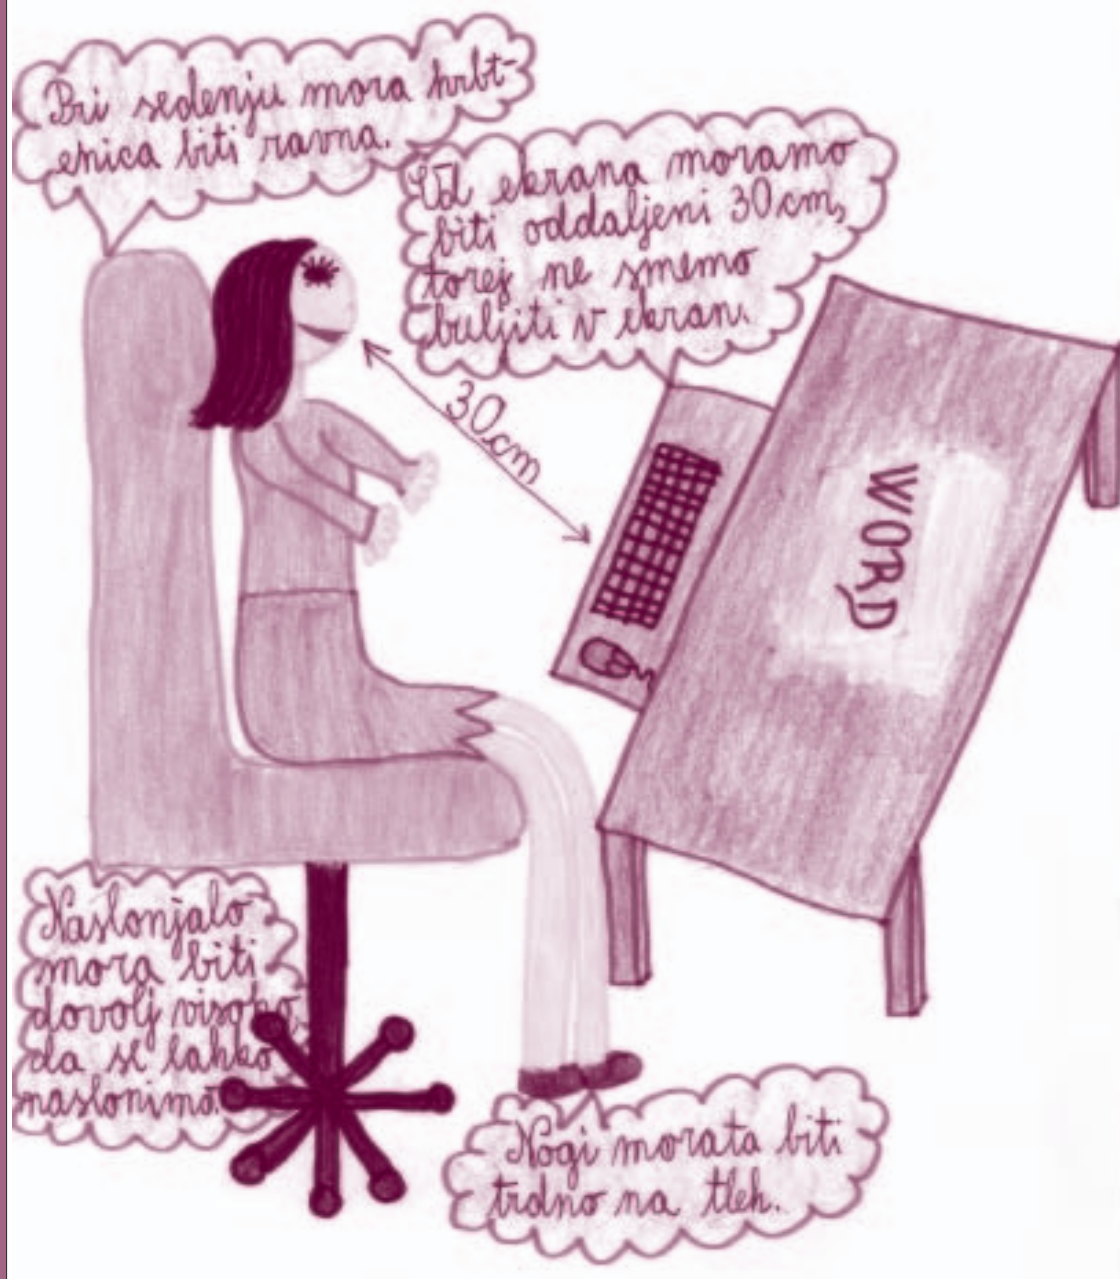 Pri sedenju mora hrbt-
enica biti ravna.
Od ekrana moramo
biti oddaljeni 30 cm,
torej ne smemo
buljiti v ekran.
30 cm
WORD
Naslonjalo
mora biti
dovolj visoko,
da se lahko
naslonimo.
Nogi morata biti
trdno na tleh.